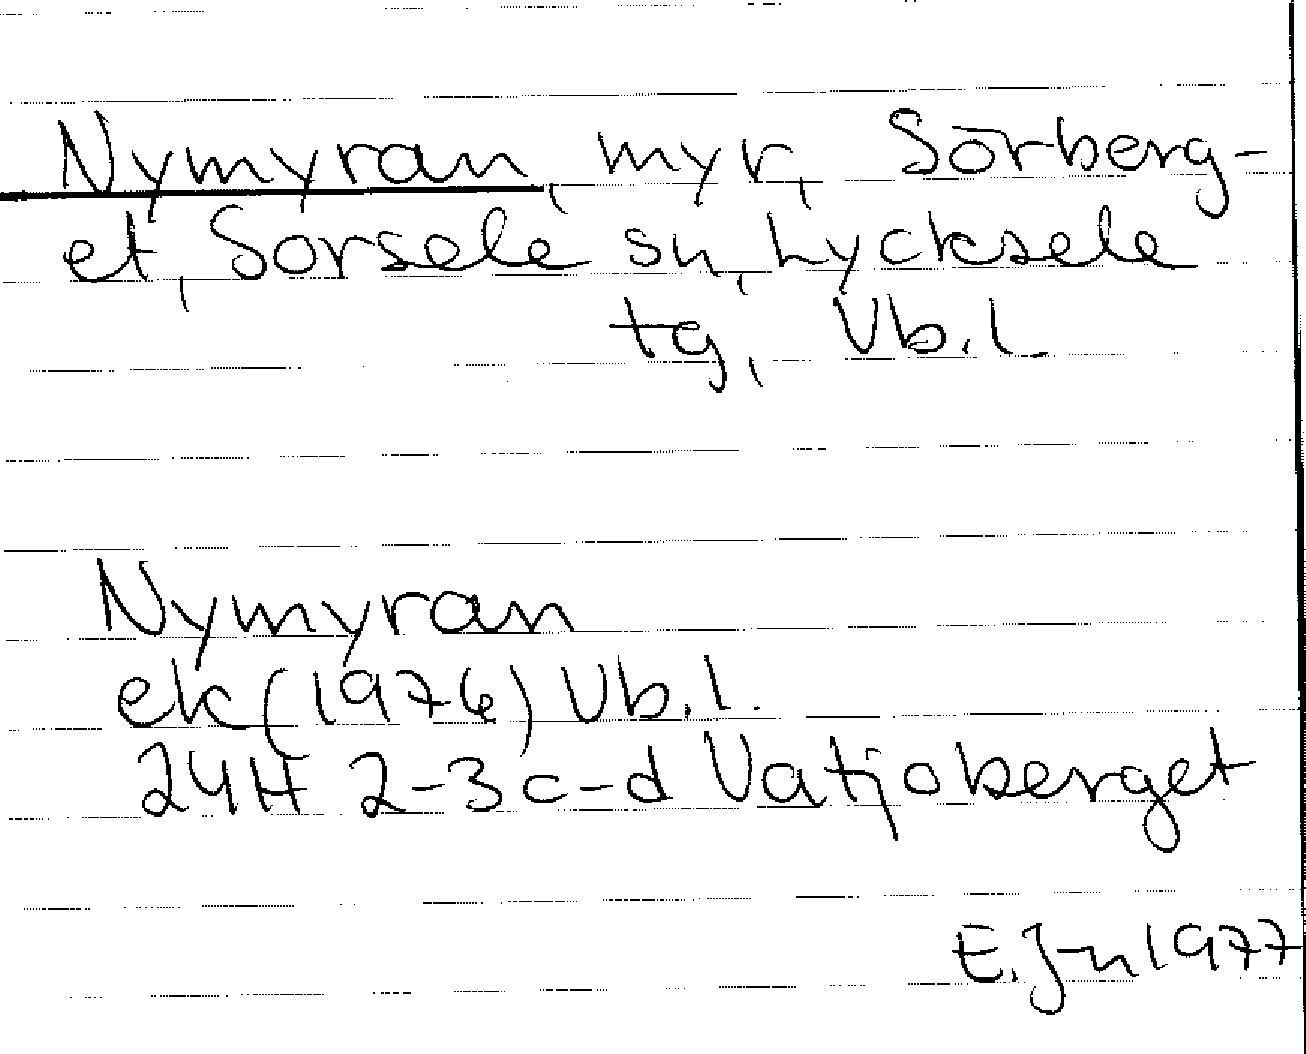 Nymyran, myr, Sörberg-
et, Sorsele sn, Lycksele
tg, Vb.l.
Nymyran
ek (1976) Vb.l.
24H 2-3 c-d Vatjoberget
E. J-n 1977